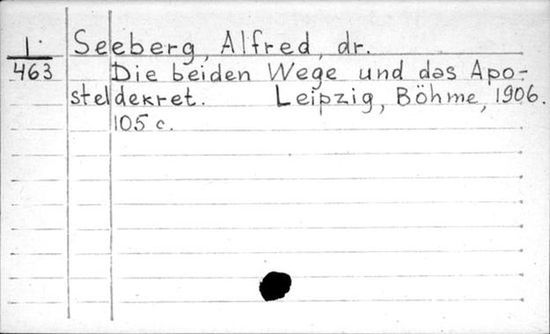 I.
463
Seeberg, Alfred, dr.
Die beiden Wege und das Apo-
steldekret. Leipzig, Böhme, 1906.
105 c.